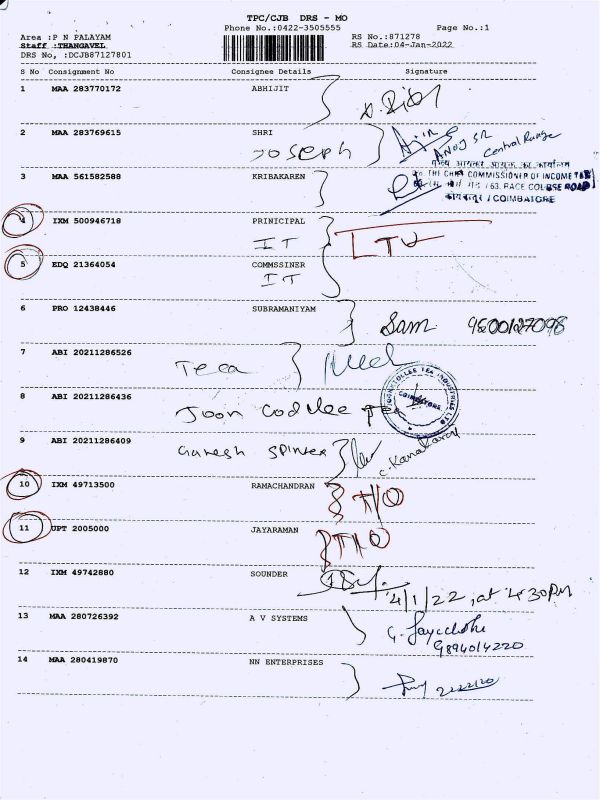 TPC/CJB DRS - MO
Phone No.:0422-3505555 Page No.:1
Area :P N PALAYAM RS No.:871278
Staff :THANGAVEL RS Date:04-Jan-2022
DRS No, :DCJB87127801
S No Consignment No Consignee Details Signature
1 MAA 283770172 ABHIJIT
2 MAA 283769615 SHRI
Joseph
ANOJ SR
Central Range
3 MAA 561582588 KRIBAKAREN
THE CHIEF COMMISSIONER OF INCOME TAX
63, RACE COURSE ROAD
कोयम्बत्तूर / COIMBATORE
4 IXM 500946718 PRINICIPAL
IT
LTU
5 EDQ 21364054 COMMSSINER
IT
6 PRO 12438446 SUBRAMANIYAM
Sam 9500127098
7 ABI 20211286526
Teea
8 ABI 20211286436
Joon Codllee Tea
JOONKTOLLEE TEA INDUSTRIES LTD
COIMBATORE
9 ABI 20211286409
Ganesh Spinter
C. Kanakaraj
10 IXM 49713500 RAMACHANDRAN
T/O
11 UPT 2005000 JAYARAMAN
T/O
12 IXM 49742880 SOUNDER
4/1/22, at 4.30PM
13 MAA 280726392 A V SYSTEMS
9894014220
14 MAA 280419870 NN ENTERPRISES